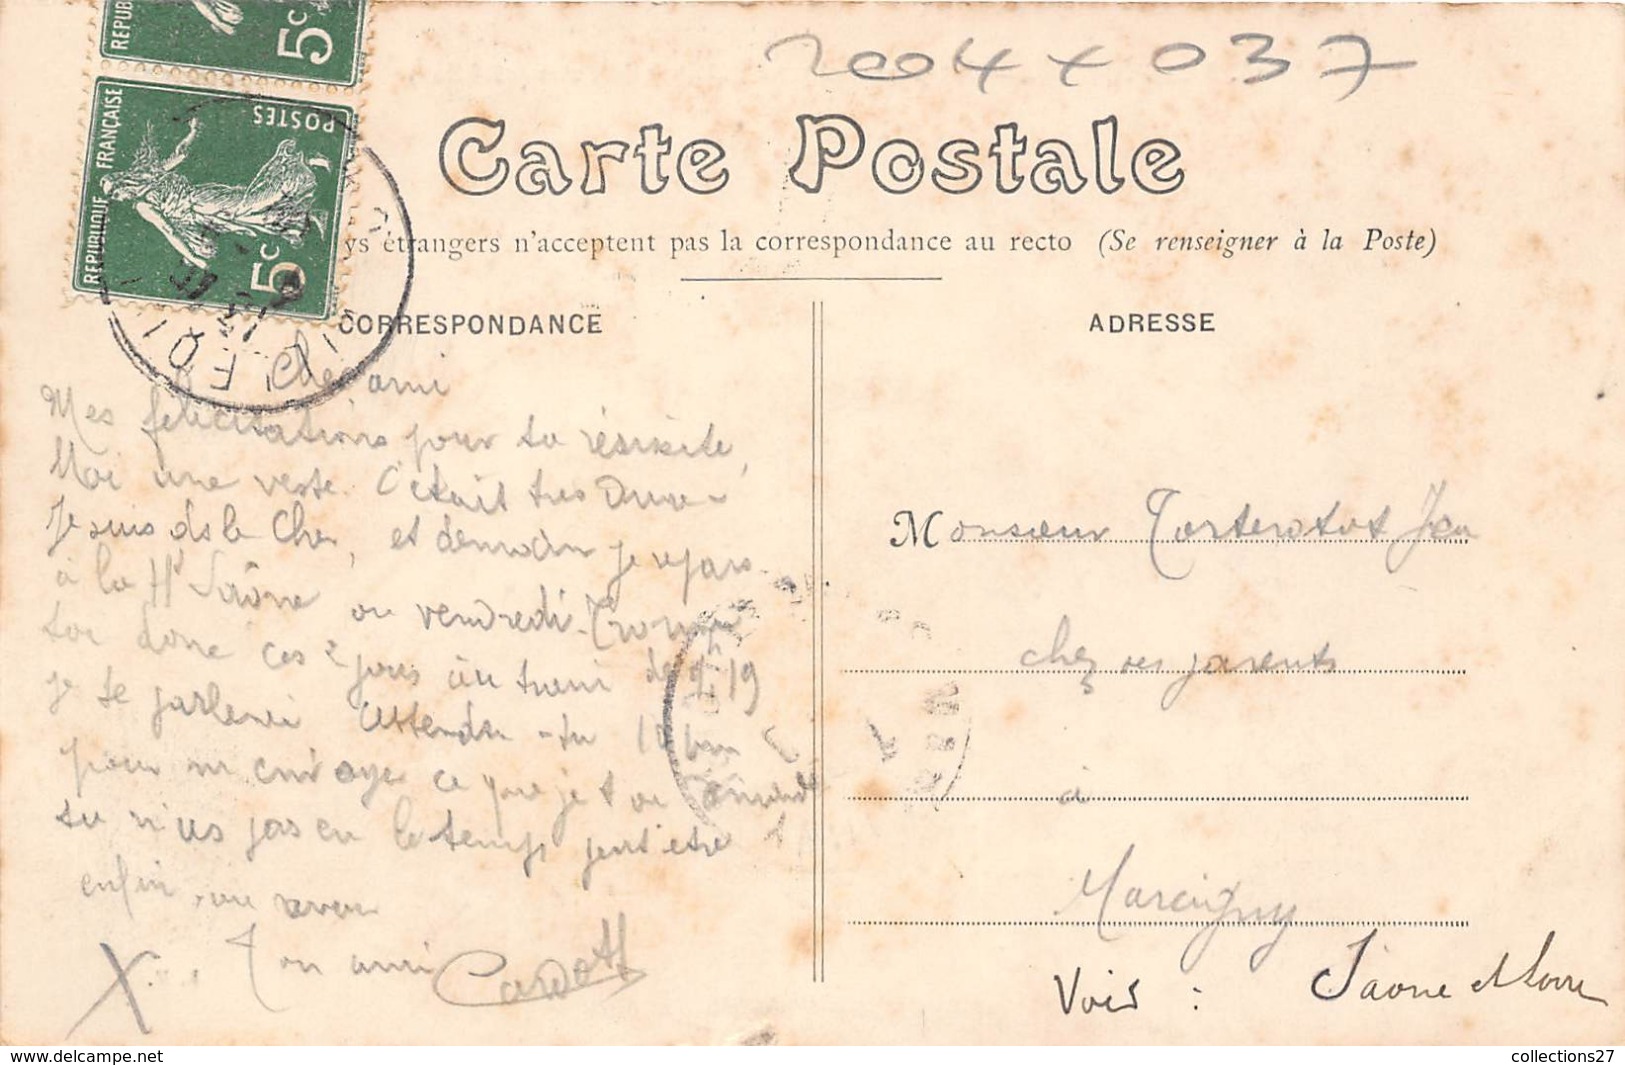 REPUB
5c
2004 x 037
REPUBLIQUE FRANÇAISE
POSTES
5c
Carte Postale
ys étrangers n'acceptent pas la correspondance au recto (Se renseigner à la Poste)
CORRESPONDANCE
ADRESSE
Cher ami
Mes felicitations pour ta
Moi une veste. C'était très
Je suis ds le Cher, et demain je repars
à la Hte Saône ou vendredi.
toi donc ces 2 jours au train de 19
je te parlerai Attends-tu
pour m'envoyer ce que je t'ai demandé
tu n'as pas eu le temps peut être
enfin, au revoir
Ton ami Cardott
X
Monsieur Torterotot Jean
chez ses parents
à
Marcigny
Voir : Saone et Loire
www.delcampe.net
collections27